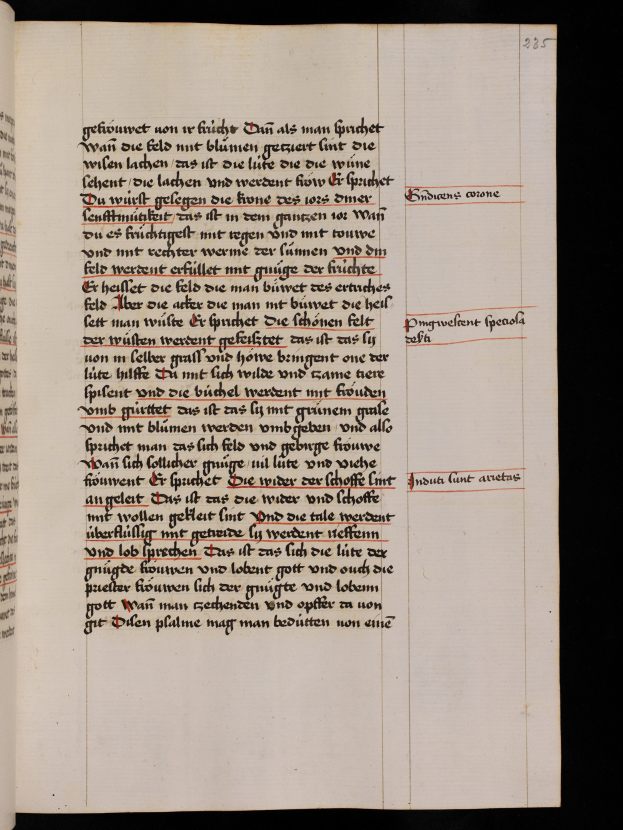 235
gefröuwet von ir frücht Dañ als man sprichet
wañ die feld mit blümen geziert sint die
wisen lachen / das ist die lüte die die wüne
sehent / die lachen und werdent frow Er sprichet
Du würst gesegen die krone des iors diner
senfftmütikeit / das ist in dem gantzen ior wañ
du es früchtigest mit regen und mit touwe
und mit rechter werme der sünnen und din
feld werdent erfüllet mit gnüge der früchte
Er heisset die feld die man büwet des ertriches
feld Aber die acker die man nit büwet die heis
sett man wüste Er sprichet die schönen felt
der wüsten werdent gefeisztet das ist das sy
von in selber grass und höwe bringent one der
lüte hilffe Da mit sich wilde und czame tiere
spisent und die büchel werdent mit fröuden
umb gürttet das ist das sy mit grünem grase
und mit blümen werden umbgeben / und also
sprichet man das sich feld und gebirge fröuwe
wañ sich sollicher gnüge / vil lüte und viehe
fröuwent Er sprichet Die wider der schoffe sint
an geleit Das ist das die wider und schoffe
mit wollen gekleit sint Und die tale werdent
überflüssig mit getreide sy werdent rieffenn
und lob sprechen Das ist das sich die lüte der
gnügde fröuwen und lobent gott und ouch die
priester fröuwen sich der gnügte und lobenn
gott wañ man czechenden und opffer da von
git Disen psalme mag man bedütten von eineͫ
Bñdicens corone
Pingwescent speciosa
deserti
Induti sunt arietes